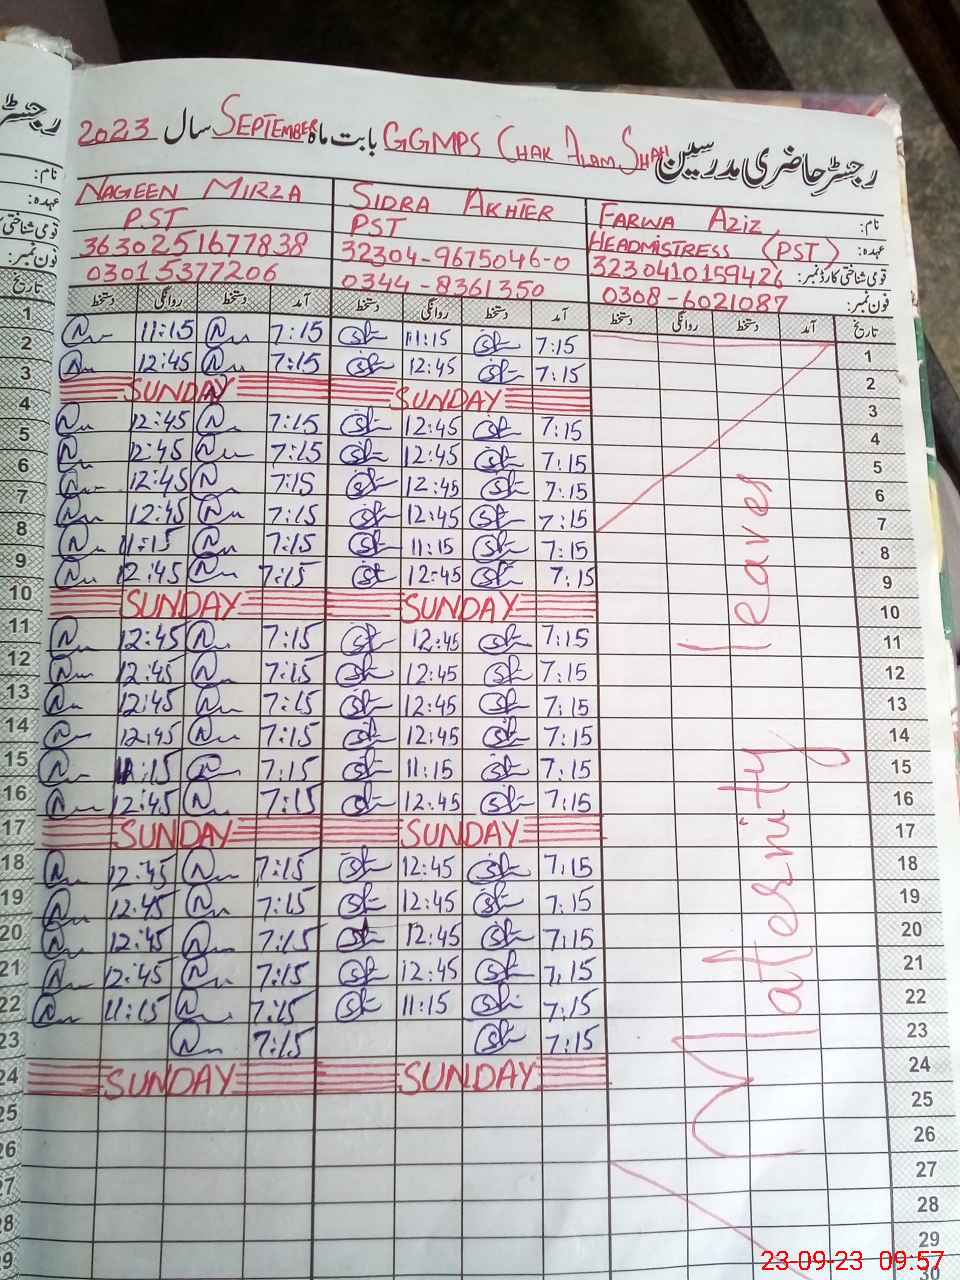 رجسٹر حاضری مدرسین GGMPS CHAK ALAM SHAH بابت ماہ SEPTEMBER سال 2023
رجسٹر
NAGEEN MIRZA SIDRA AKHTER FARWA AZIZ نام:
PST PST HEADMISTRESS (PST) عہدہ:
3630251677838 32304-9675046-0 3230410159426 قومی شناختی کارڈ نمبر:
03015377206 0344-8361350 0308-6021087 فون نمبر:
نام:
عہدہ:
قومی شناختی کا
فون نمبر:
تاریخ دستخط روانگی دستخط آمد دستخط روانگی دستخط آمد دستخط روانگی دستخط آمد تاریخ
1 11:15 7:15 11:15 7:15 1
2 12:45 7:15 12:45 7:15 2
3 SUNDAY SUNDAY 3
4 12:45 7:15 12:45 7:15 4
5 12:45 7:15 12:45 7:15 5
6 12:45 7:15 12:45 7:15 6
7 12:45 7:15 12:45 7:15 7
8 11:15 7:15 11:15 7:15 8
9 12:45 7:15 12:45 7:15 9
10 SUNDAY SUNDAY 10
11 12:45 7:15 12:45 7:15 11
12 12:45 7:15 12:45 7:15 12
13 12:45 7:15 12:45 7:15 13
14 12:45 7:15 12:45 7:15 14
15 11:15 7:15 11:15 7:15 15
16 12:45 7:15 12:45 7:15 16
17 SUNDAY SUNDAY 17
18 12:45 7:15 12:45 7:15 18
19 12:45 7:15 12:45 7:15 19
20 12:45 7:15 12:45 7:15 20
21 12:45 7:15 12:45 7:15 21
22 11:15 7:15 11:15 7:15 22
23 7:15 7:15 23
24 SUNDAY SUNDAY 24
25 25
26 26
27 27
28 28
29 29
30
Maternity leaves
23-09-23 09:57